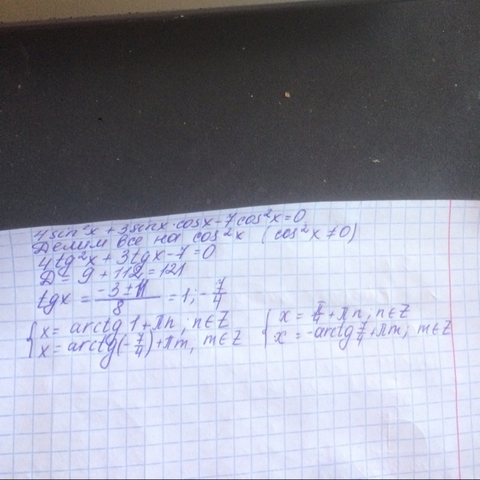 4sin²x + 3sinx·cosx - 7cos²x = 0
Делим все на cos²x (cos²x ≠ 0)
4tg²x + 3tgx - 7 = 0
D = 9 + 112 = 121
tgx = (-3 ± 11)/8 = 1; -7/4
{ x = arctg 1 + πn, n∈Z { x = π/4 + πn, n∈Z
x = arctg(-7/4) + πm, m∈Z x = -arctg 7/4 + πm, m∈Z